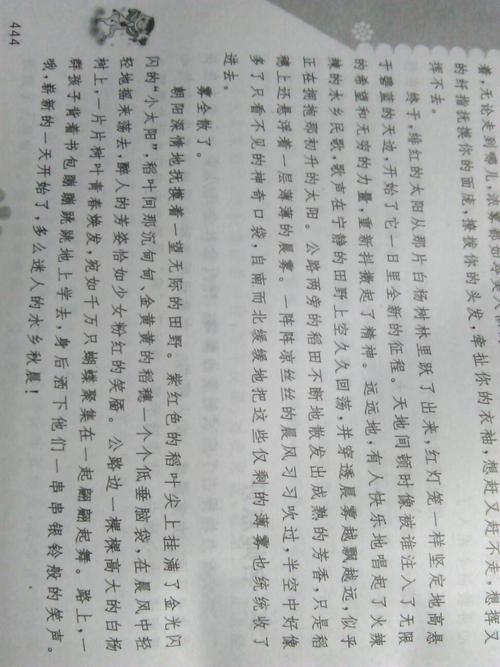 着，无论走到哪儿，浓雾都如
的纤指抚摸你的面庞，撩拨你的头发，牵扯你的衣袖，想赶又赶不走，想挥又
挥不去。
终于，绯红的太阳从那片白杨树林里跃了出来，红灯笼一样坚定地高悬
于罄重的天边，开始了它一日里全新的征程。天地间顿时像被谁注入了无限
的希望和无穷的力量，重新抖擞起了精神。远远地，有人快乐地唱起了火辣
辣的水乡民歌，歌声在宁静的田野上空久久回荡，并穿透晨雾越飘越远，似乎
正在拥抱那初升的太阳。公路两旁的稻田不断地散发出成熟的芳香，只是稻
穗上还悬浮着一层薄薄的晨雾。一阵阵凉丝丝的晨风习习吹过，半空中好像
多了只看不见的神奇口袋，自南而北缓缓地把这些仅剩的薄雾也统统收了
进去。
雾全散了。
朝阳深情地抚摸着一望无际的田野。紫红色的稻叶尖上挂满了金光闪
闪的“小太阳”，稻叶间那沉甸甸、金黄黄的稻穗一个个低垂脑袋，在晨风中轻
轻地摇来荡去，醉人的芳姿恰如少女粉红的笑靥。公路边一棵棵高大的白杨
树上，一片片树叶青春焕发，宛如千万只蝴蝶聚集在一起翩翩起舞。路上，一
群孩子背着书包蹦蹦跳跳地上学去，身后洒下他们一串串银铃般的笑声。
哦，崭新的一天开始了，多么迷人的水乡秋晨！
444